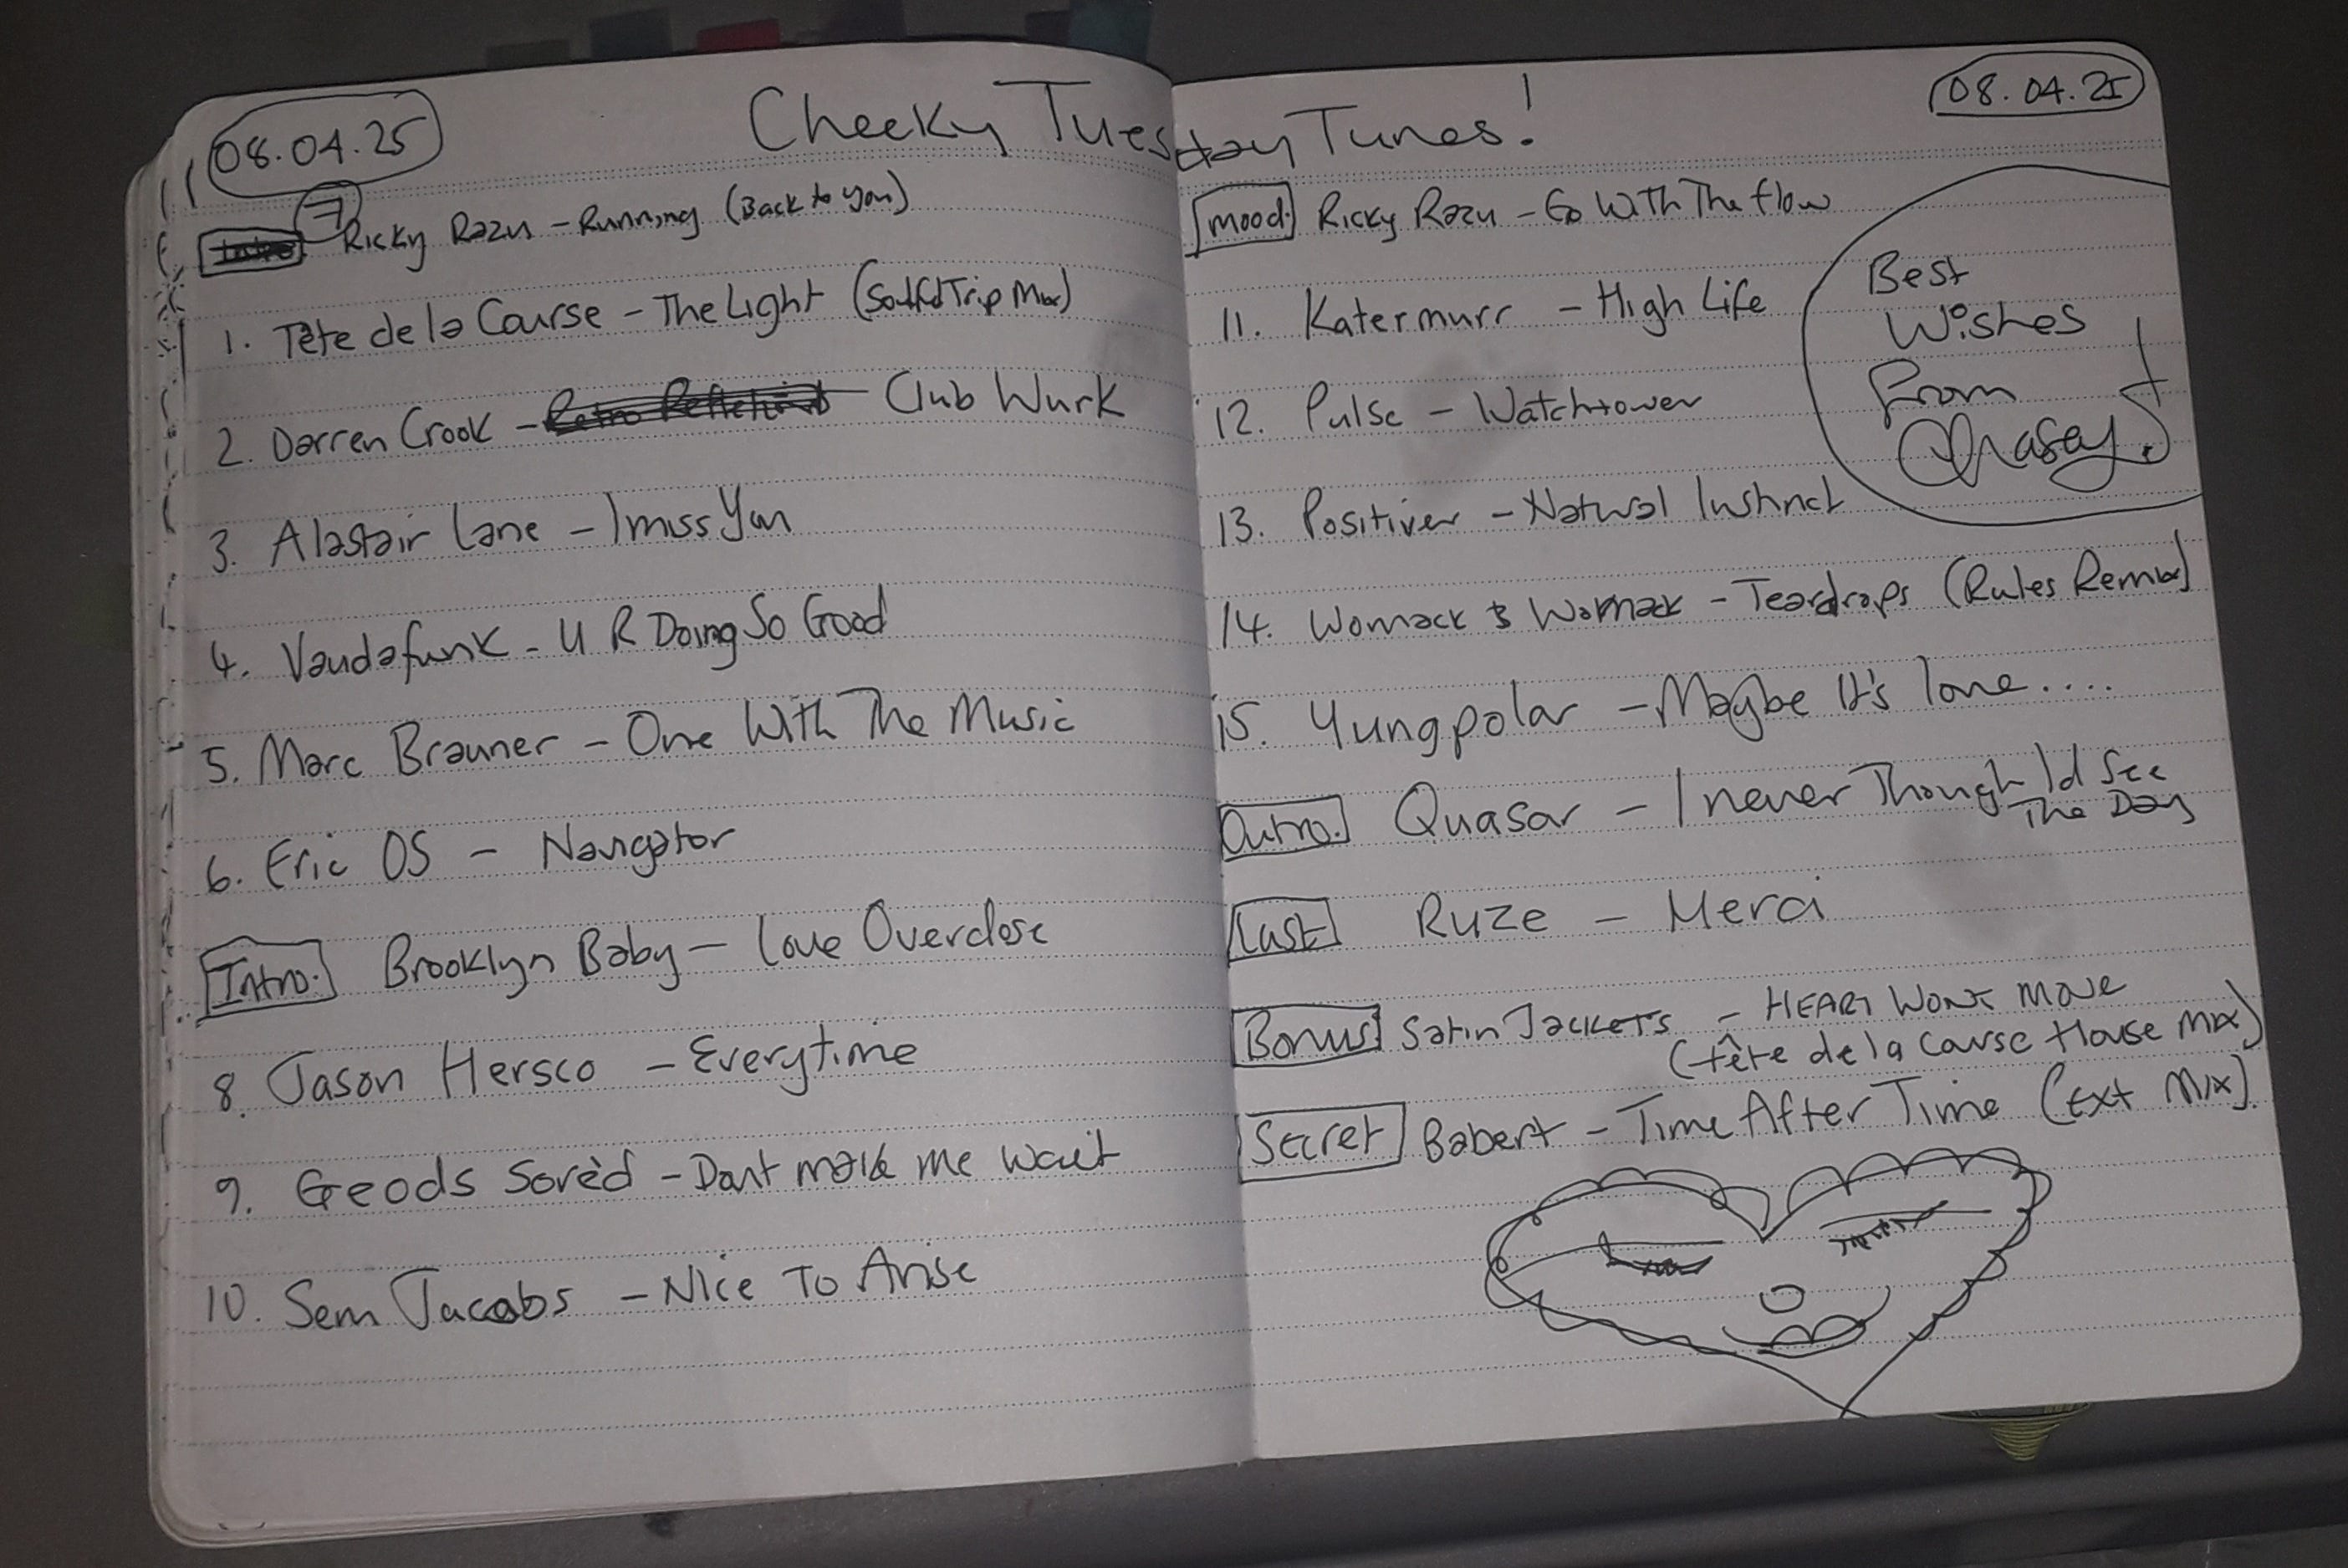 08.04.25
Cheeky Tuesday Tunes!
08.04.25
7
Ricky Razu - Running (Back to You)
1. Tête de la Course - The Light (Trip Mix)
2. Darren Crook - Club Wurk
3. Alastair Lane - I miss You
4. Vaudafunk - U R Doing So Good
5. Marc Brauner - One With The Music
6. Eric OS - Navigator
Intro. Brooklyn Baby - Love Overdose
8. Jason Hersco - Everytime
9. Geods Sorèd - Dont make me wait
10. Sem Jacobs - Nice To Arise
mood. Ricky Razu - Go With The flow
11. Katermurr - High Life
12. Pulse - Watchtower
13. Positiver - Natural Instinct
14. Womack & Womack - Teardrops (Rules Remix)
15. Yungpolar - Maybe It's love....
Outro. Quasar - I never Though I'd See
The Day
Last Ruze - Merci
Bonus! Satin Jackets - HEART WONT MOVE
(tête de la Course House Mix)
Secret Babert - Time After Time (Ext Mix).
Best
Wishes
From
Chasey!